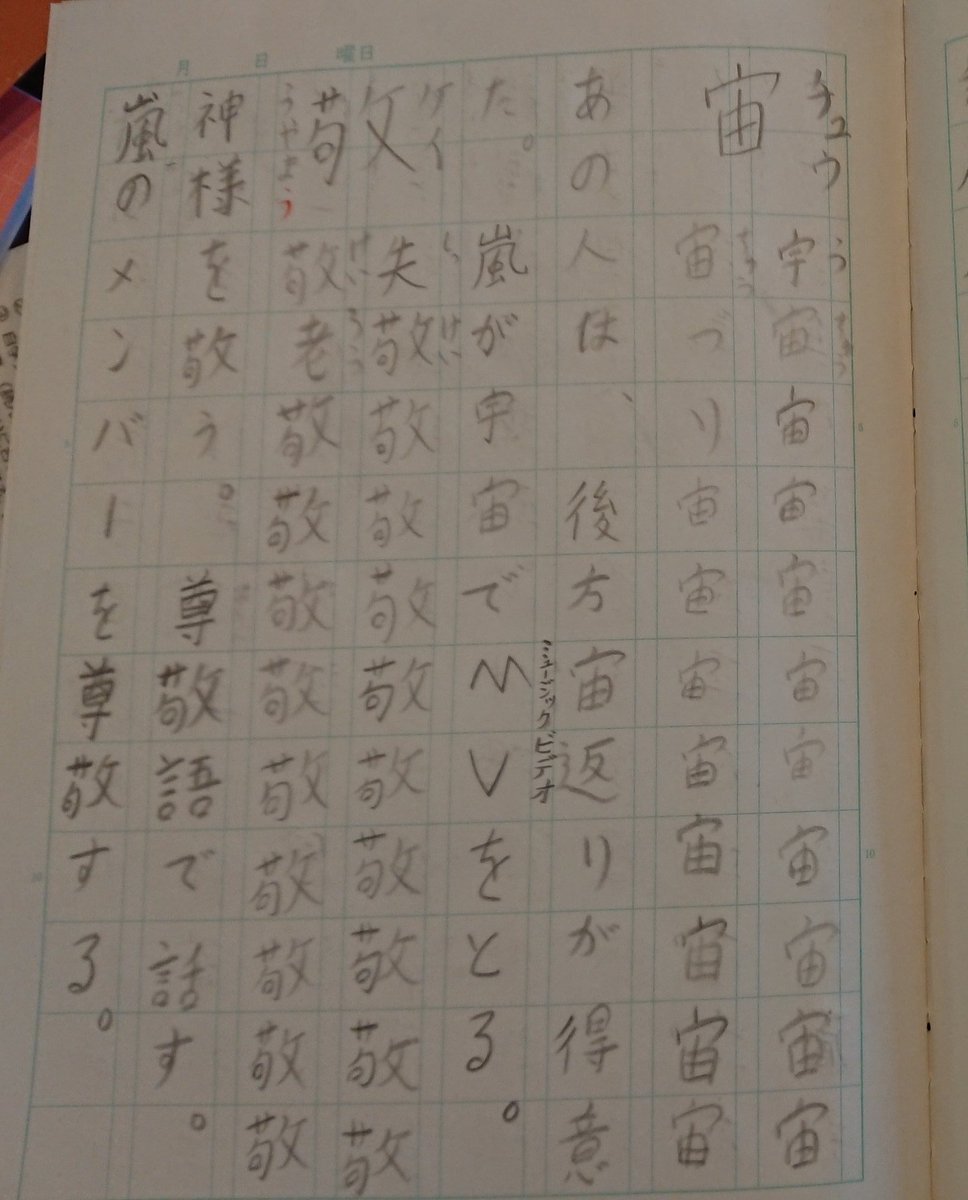 月 日 曜日
チュウ
宙
うちゅう
宇宙宙宙宙宙宙宙宙宙宙
ちゅう
宙づり宙宙宙宙宙宙宙宙
あの人は、後方宙返りが得意
ミュージックビデオ
た。嵐が宇宙でMVをとる。
ケイ
敬
うやまう
しっけい
失敬敬敬敬敬敬敬敬敬敬
けいろう
敬老敬敬敬敬敬敬敬敬敬
神様を敬う。尊敬語で話す。
嵐のメンバーを尊敬する。
5
10